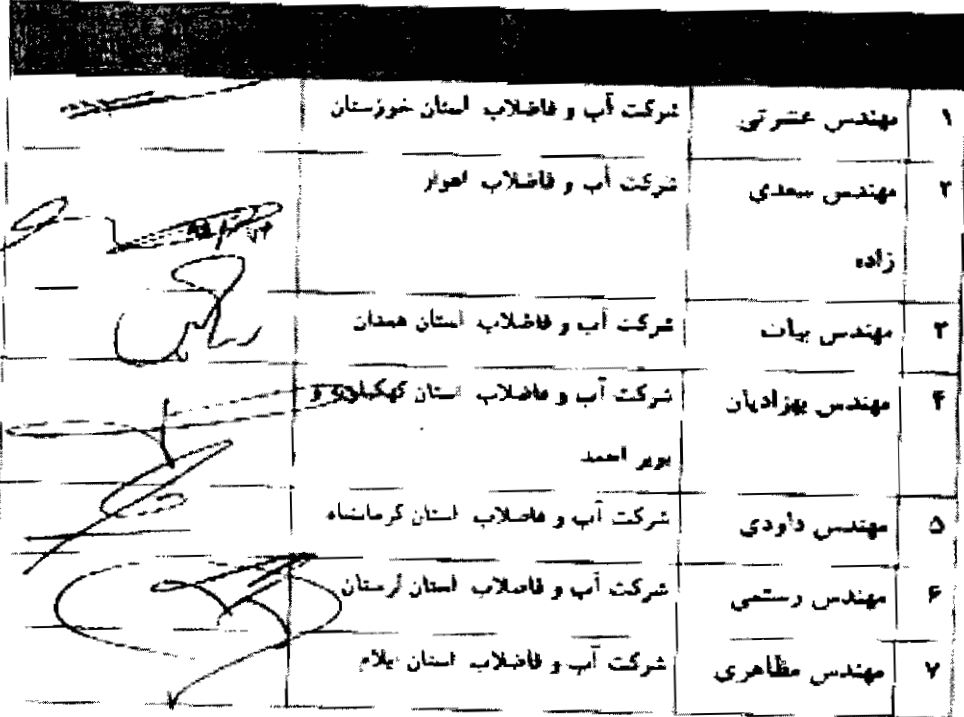 ۱ مهندس عشرتی شرکت آب و فاضلاب استان خوزستان
۲ مهندس سعدی شرکت آب و فاضلاب اهواز
زاده
۳ مهندس بیات شرکت آب و فاضلاب استان همدان
۴ مهندس بهزادیان شرکت آب و فاضلاب استان کهکیلویه و
بویر احمد
۵ مهندس داودی شرکت آب و فاضلاب استان کرمانشاه
۶ مهندس رستمی شرکت آب و فاضلاب استان لرستان
۷ مهندس مظاهری شرکت آب و فاضلاب استان ایلام